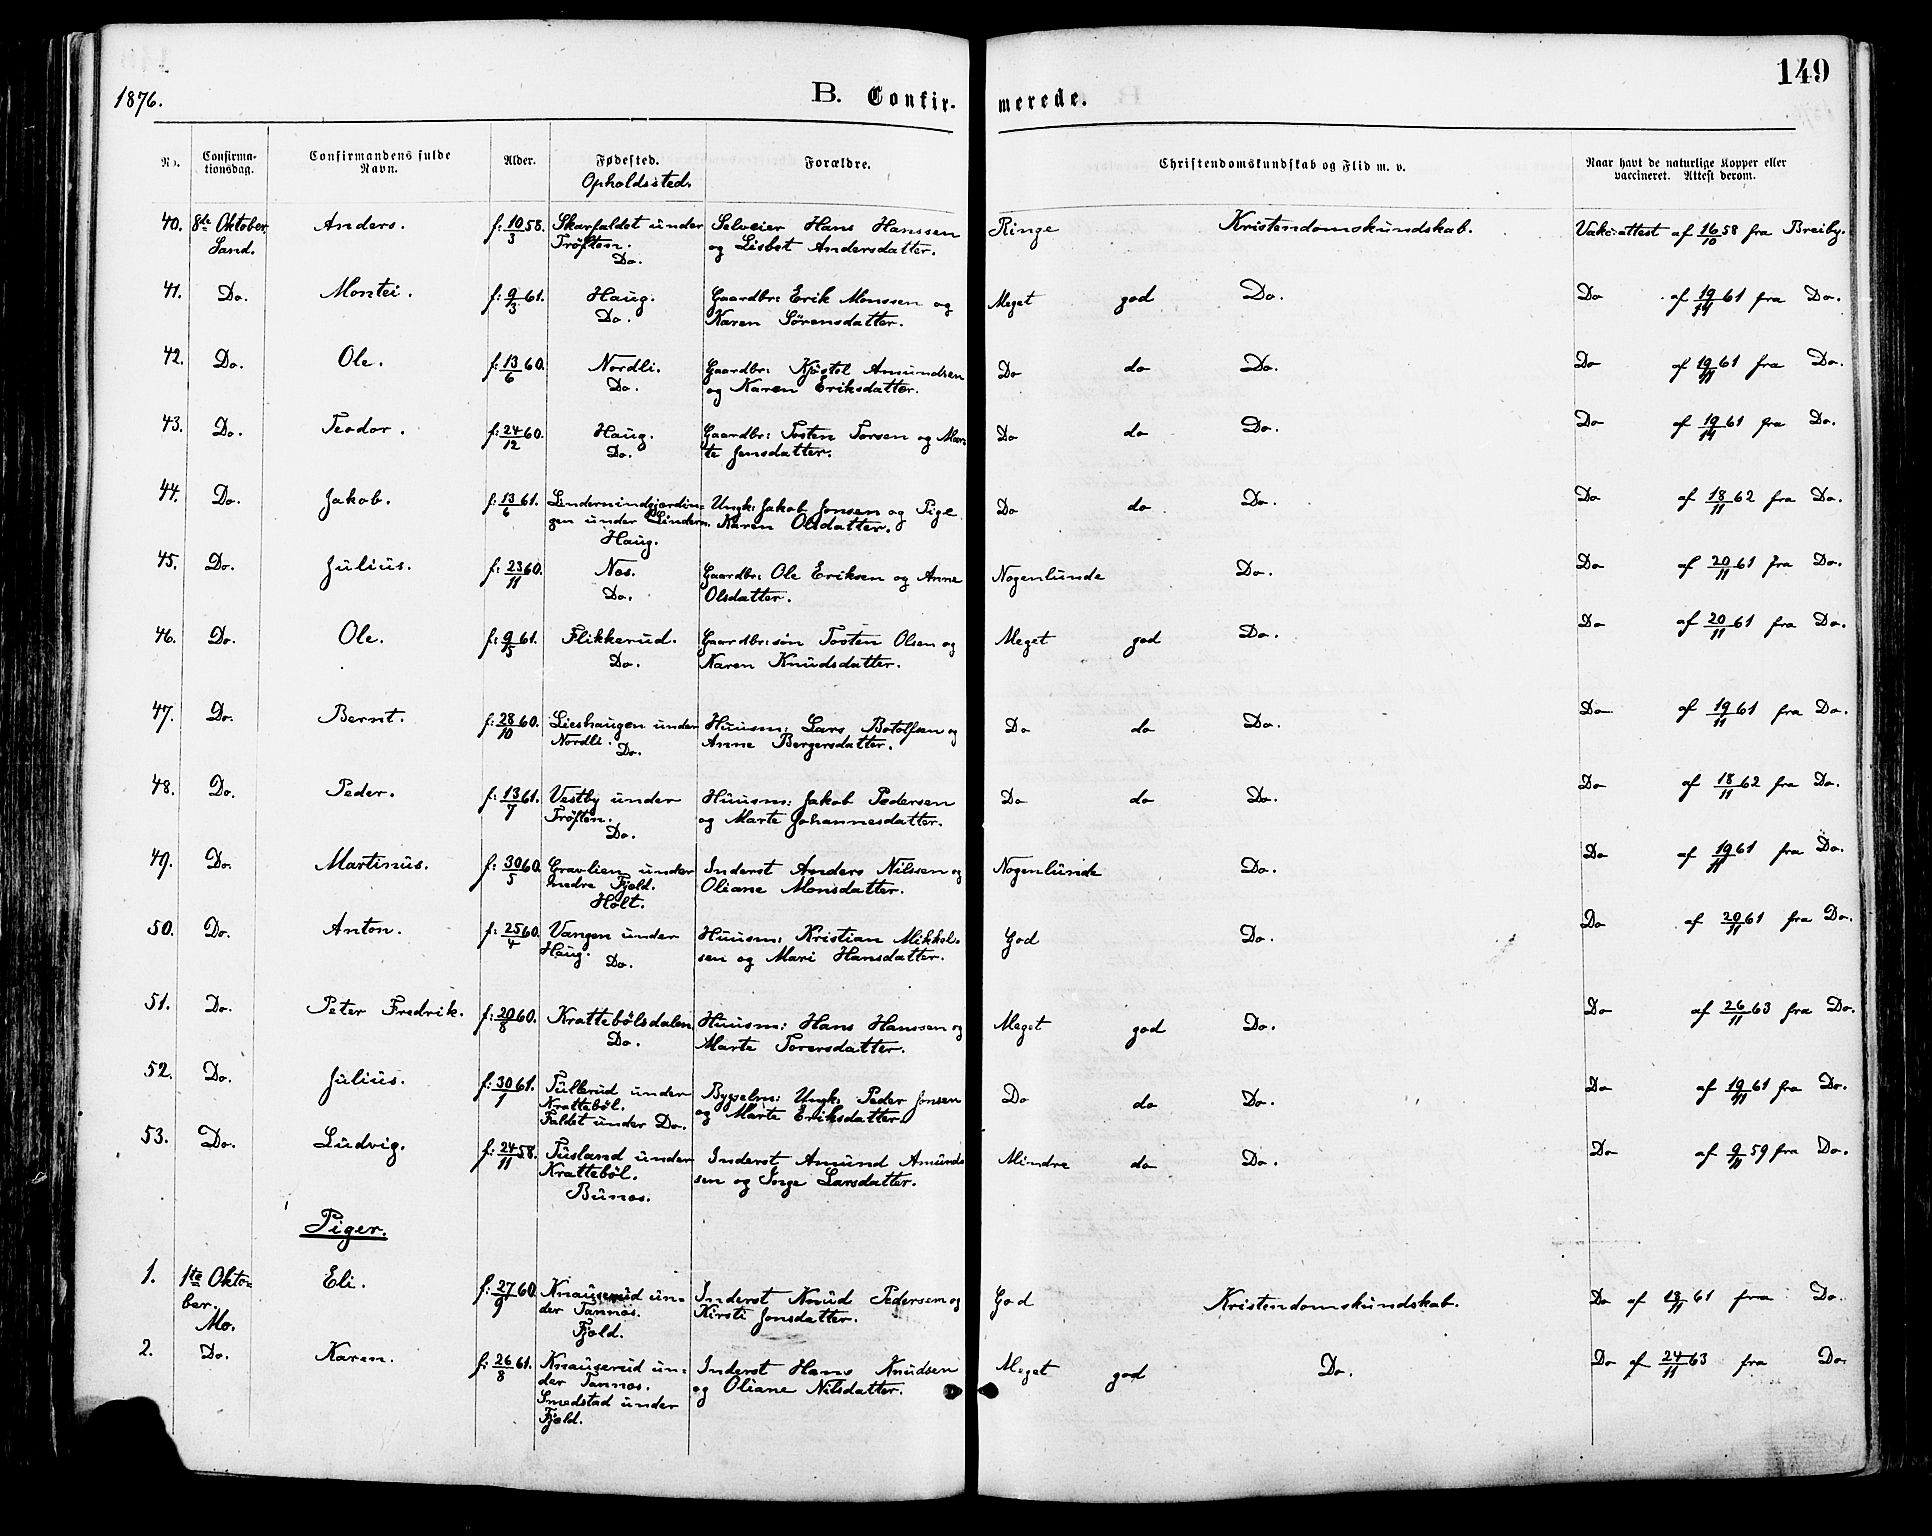 149
1876.
B. Confirmerede.
No.
Confirma-
tionsdag.
Confirmandens fulde
Navn.
Alder.
Fødested.
Opholdssted.
Forældre.
Christendomskundskab og Flid m. v.
Naar havt de naturlige Kopper eller
vaccineret. Attest derom.
40. 8de Oktober Anders. f: 10/3 58. Skarfaldet under Selveier Hans Hanssen Ringe Kristendomskundskab. Vak: attest af 16/10 58 fra Breiby.
Sand. Trøften. og Lisbet Andersdatter.
Do.
41. Do. Montei. f: 9/3 61. Haug. Gaardbr: Erik Monssen og Meget god Do. Do af 19/11 61 fra Do.
Do. Karen Sørensdatter.
42. Do. Ole. f: 13/6 60. Nordli. Gaardbr: Kjøstol Amundsen Do do Do. Do af 19/11 61 fra Do.
Do. og Karen Eriksdatter.
43. Do. Teodor. f: 24/12 60. Haug. Gaardbr: Tosten Torsen og Mar- Do do Do. Do af 19/11 61 fra Do.
Do. te Jensdatter.
44. Do. Jakob. f: 13/6 61. Lindernindgjordin- Ungk: Jakob Jonsen og Pige Do do Do. Do af 18/11 62 fra Do.
gen under Lindern. Karen Olsdatter.
Haug.
45. Do. Julius. f: 23/11 60. Næs. Gaardbr: Ole Eriksen og Anne Nogenlunde Do. Do af 20/11 61 fra Do.
Do. Olsdatter.
46. Do. Ole. f: 9/5 61. Flikkerud. Gaardbr: søn Tosten Olsen og Meget god Do. Do af 20/11 61 fra Do.
Do. Karen Knudsdatter.
47. Do. Bernt. f: 28/10 60. Lieshaugen under Huusm: Lars Botolfsen og Do do Do. Do af 19/11 61 fra Do.
Nordli. Do. Anne Bergersdatter.
48. Do. Peder. f: 13/7 61. Vestby under Huusm: Jakob Pedersen Do do Do. Do af 18/11 62 fra Do.
Trøften. og Marte Johannesdatter.
Do.
49. Do. Martinus. f: 30/5 60. Gravlien under Inderst Anders Nilssen og Nogenlunde Do. Do af 19/11 61 fra Do.
Nedre Fjeld. Oliane Monsdatter.
Holt.
50. Do. Anton. f: 25/4 60. Vangen under Huusm: Kristian Mikkel- God Do. Do af 20/11 61 fra Do.
Haug. Do. sen og Mari Hansdatter.
51. Do. Peter Fredrik. f: 20/8 60. Krattebølsdalen Huusm: Hans Hanssen og Meget god Do. Do af 26/11 63 fra Do.
Do. Marte Torersdatter.
52. Do. Julius. f: 30/1 61. Tullerud under Bygselm: Ungk: Peder Jonsen Do do Do. Do af 19/11 61 fra Do.
Krattebøl. og Marte Eriksdatter.
Faldet under Do.
53. Do. Ludvig. f: 24/11 58. Tusland under Inderst Amund Amund- Mindre do Do. Do af 9/11 59 fra Do.
Krattebøl. sen og Inge Larsdatter.
Bunæs.
Piger.
1. 1te Okto- Eli. f: 27/9 60. Knauserud un- Inderst Knud Pedersen og God Kristendomskundskab. Do af 18/11 61 fra Do.
ber. der Tannæs. Kirsti Jonsdatter.
Mo. Fjeld.
2. Do. Karen. f: 26/8 61. Knauserud un- Inderst Hans Knudsen Meget god Do. Do af 24/11 63 fra Do.
der Tannæs. og Oliane Nilsdatter.
Smedstad under
Fjeld.